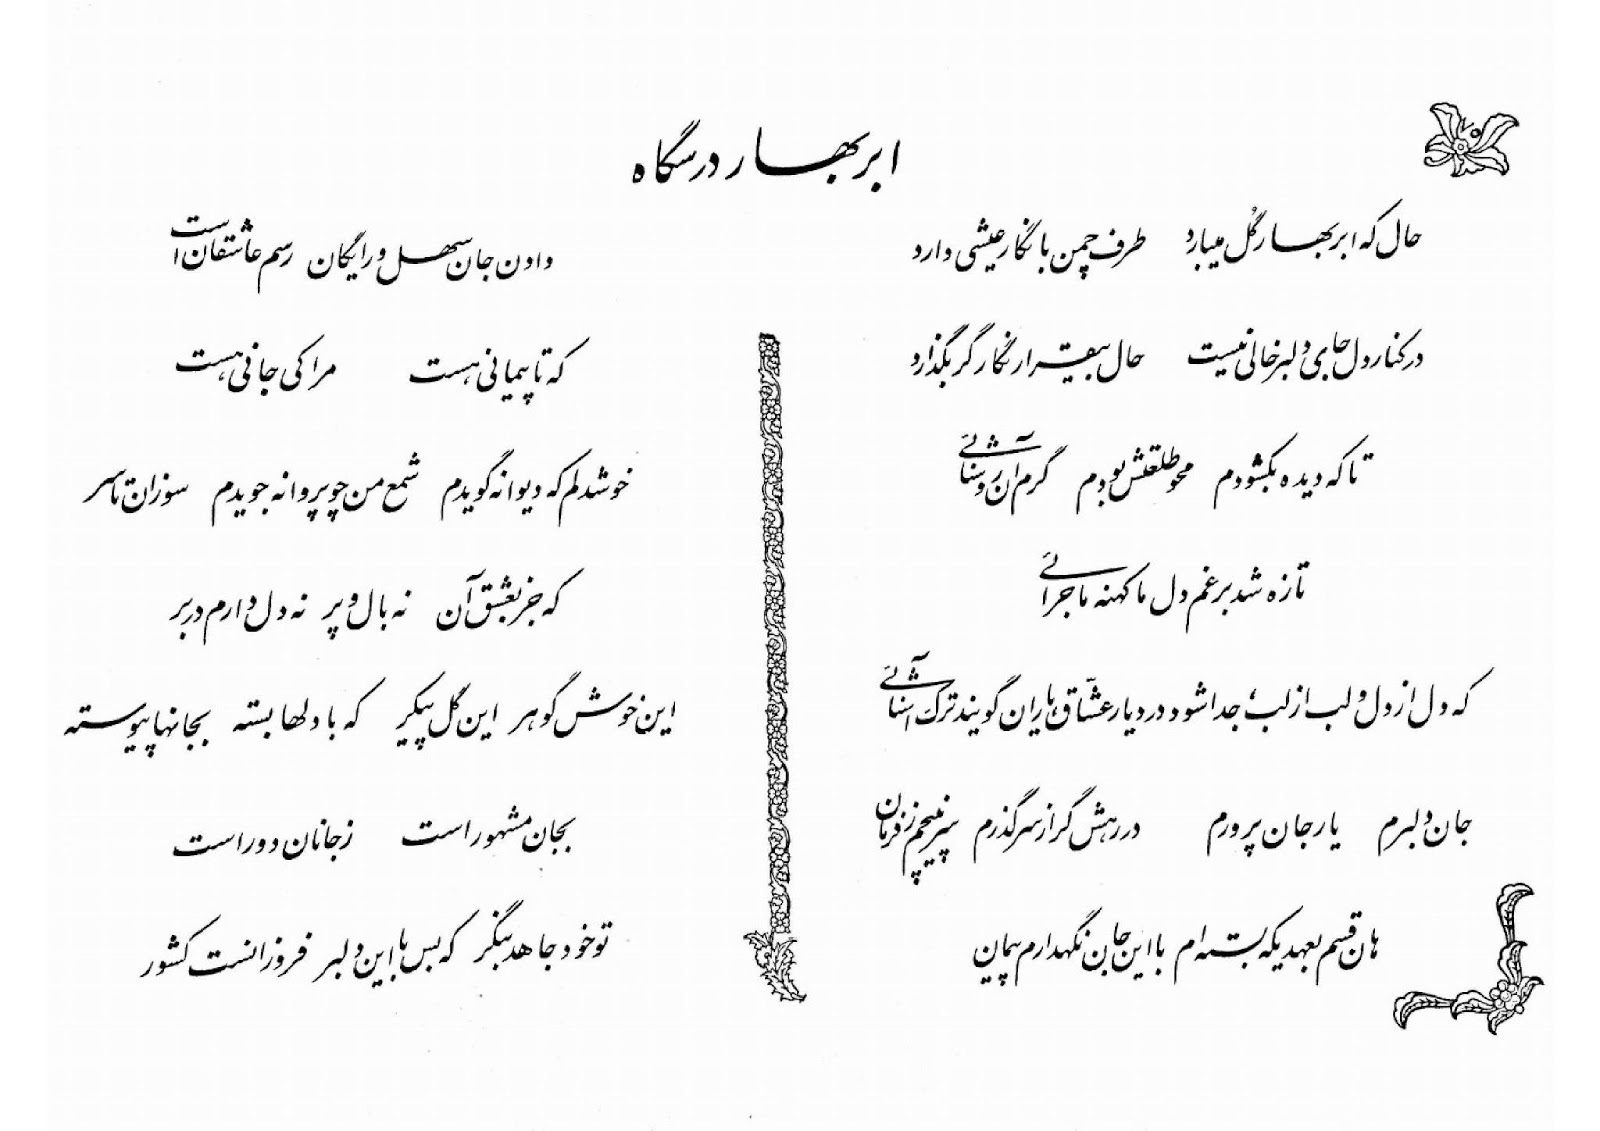 ابر بهار در سه گاه
حال که ابر بهار گُل میبارد طرف چمن با نگار عیشی دارد
در کنار دل جای دلبر خالی نیست حال بیقرار نگار گر بگذارد
تا که دیده بگشودم محو طلعتش بودم گرم آن روشنائی
تازه شد بر غم دل ما کهنه ماجرائی
که دل از دل و لب از لب جدا شود در دیار عشّاق یاران گویند ترک آشنائی
جان دلبرم یار جان پرورم در رهش گر از سر گذرم سر نپیچم ز فرمان
هان قسم بعهدیکه بسته ام با این جان نگهدارم پیمان
دادن جان سهل و رایگان رسم عاشقان است
که تا پیمانی هست مرا کی جانی هست
خوشدلم که دیوانه گویدم شمع من چو پروانه جویدم سوزان تا سر
که جز بعشق آن نه بال و پر نه دل دارم در بر
این خوش گوهر این گل پیکر که با دلها بسته بجانها پیوسته
بجان مشهور است ز جانان دور است
تو خود جاهد بنگر که بس با این دلبر فروزانست کشور